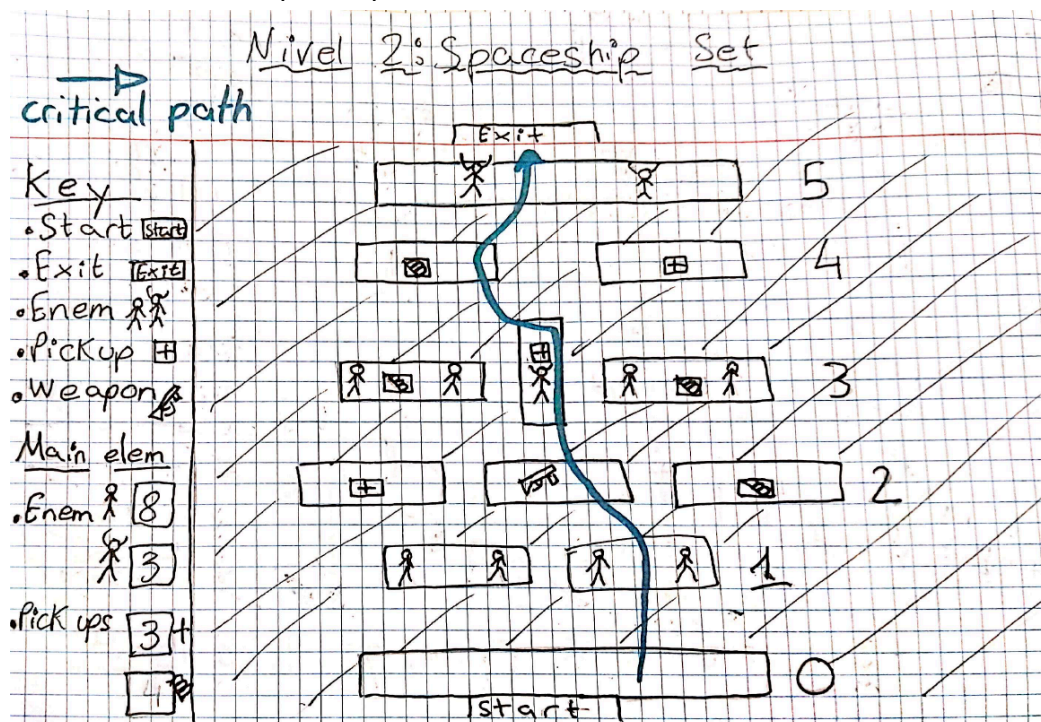 Nivel 2: Spaceship Set
critical path
Exit
Key
5
• Start Start
• Exit Exit
4
• Enem
• Pickup +
3
• Weapon
Main elem
2
• Enem 8
3
1
• Pick ups 3 +
4
0
Start